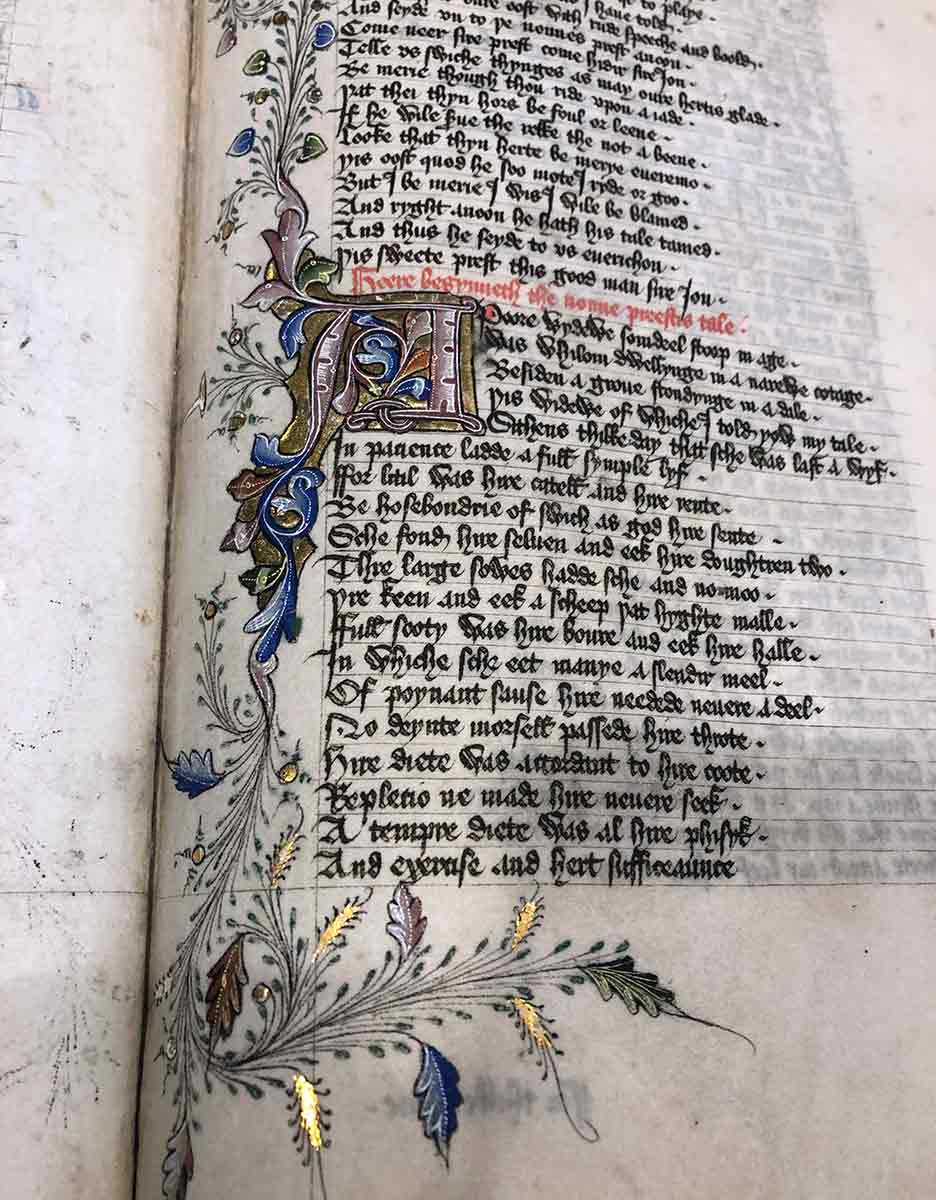 to pleye
oure oost with rude speeche and boold
And seyde vn to þe nonnes prest anoon
Come neer sire prest come hidir sire Jon
Telle vs swiche thynges as may oure hertis glade
Be merie though thou ride vpon a iade
Þat thei thyn hors be foul or leene
If he wile the rekke the not a beene
Looke that thyn herte be merye eueremo
Yis oost quod he soo mote I ryde or goo
But I be merie I wis I wile be blamed
And ryght anoon he hath his tale tamed
And thus he seyde to vs euerichon
Þis sweete prest this good man sire Jon
Heere begynneth the nonne preestis tale
A Poore wydewe somdeel stoop in age
Was whilom dwellynge in a narewe cotage
Besiden a groue stondynge in a dale
Þis widewe of whiche I told yow my tale
Sithens thilke day that sche was last a wyf
In pacience ladde a full symple lyf
ffor litil was hire catell and hire rente
Be hosebondrie of swich as god hire sente
Sche fond hire seluen and eek hire doughtren two
Thre large sowes hadde sche and no moo
Þre keen and eek a scheep þat hyghte malle
ffull sooty was hire boure and eek hire halle
In whiche sche eet manye a slendir meel
Of poynant sause hire needede neuere a deel
No deynte morsell passede hire throte
Hire diete was accordant to hire coote
Repleccio ne made hire neuere seek
A tempre diete was al hire phisyk
And exercise and hert sufficeaunce